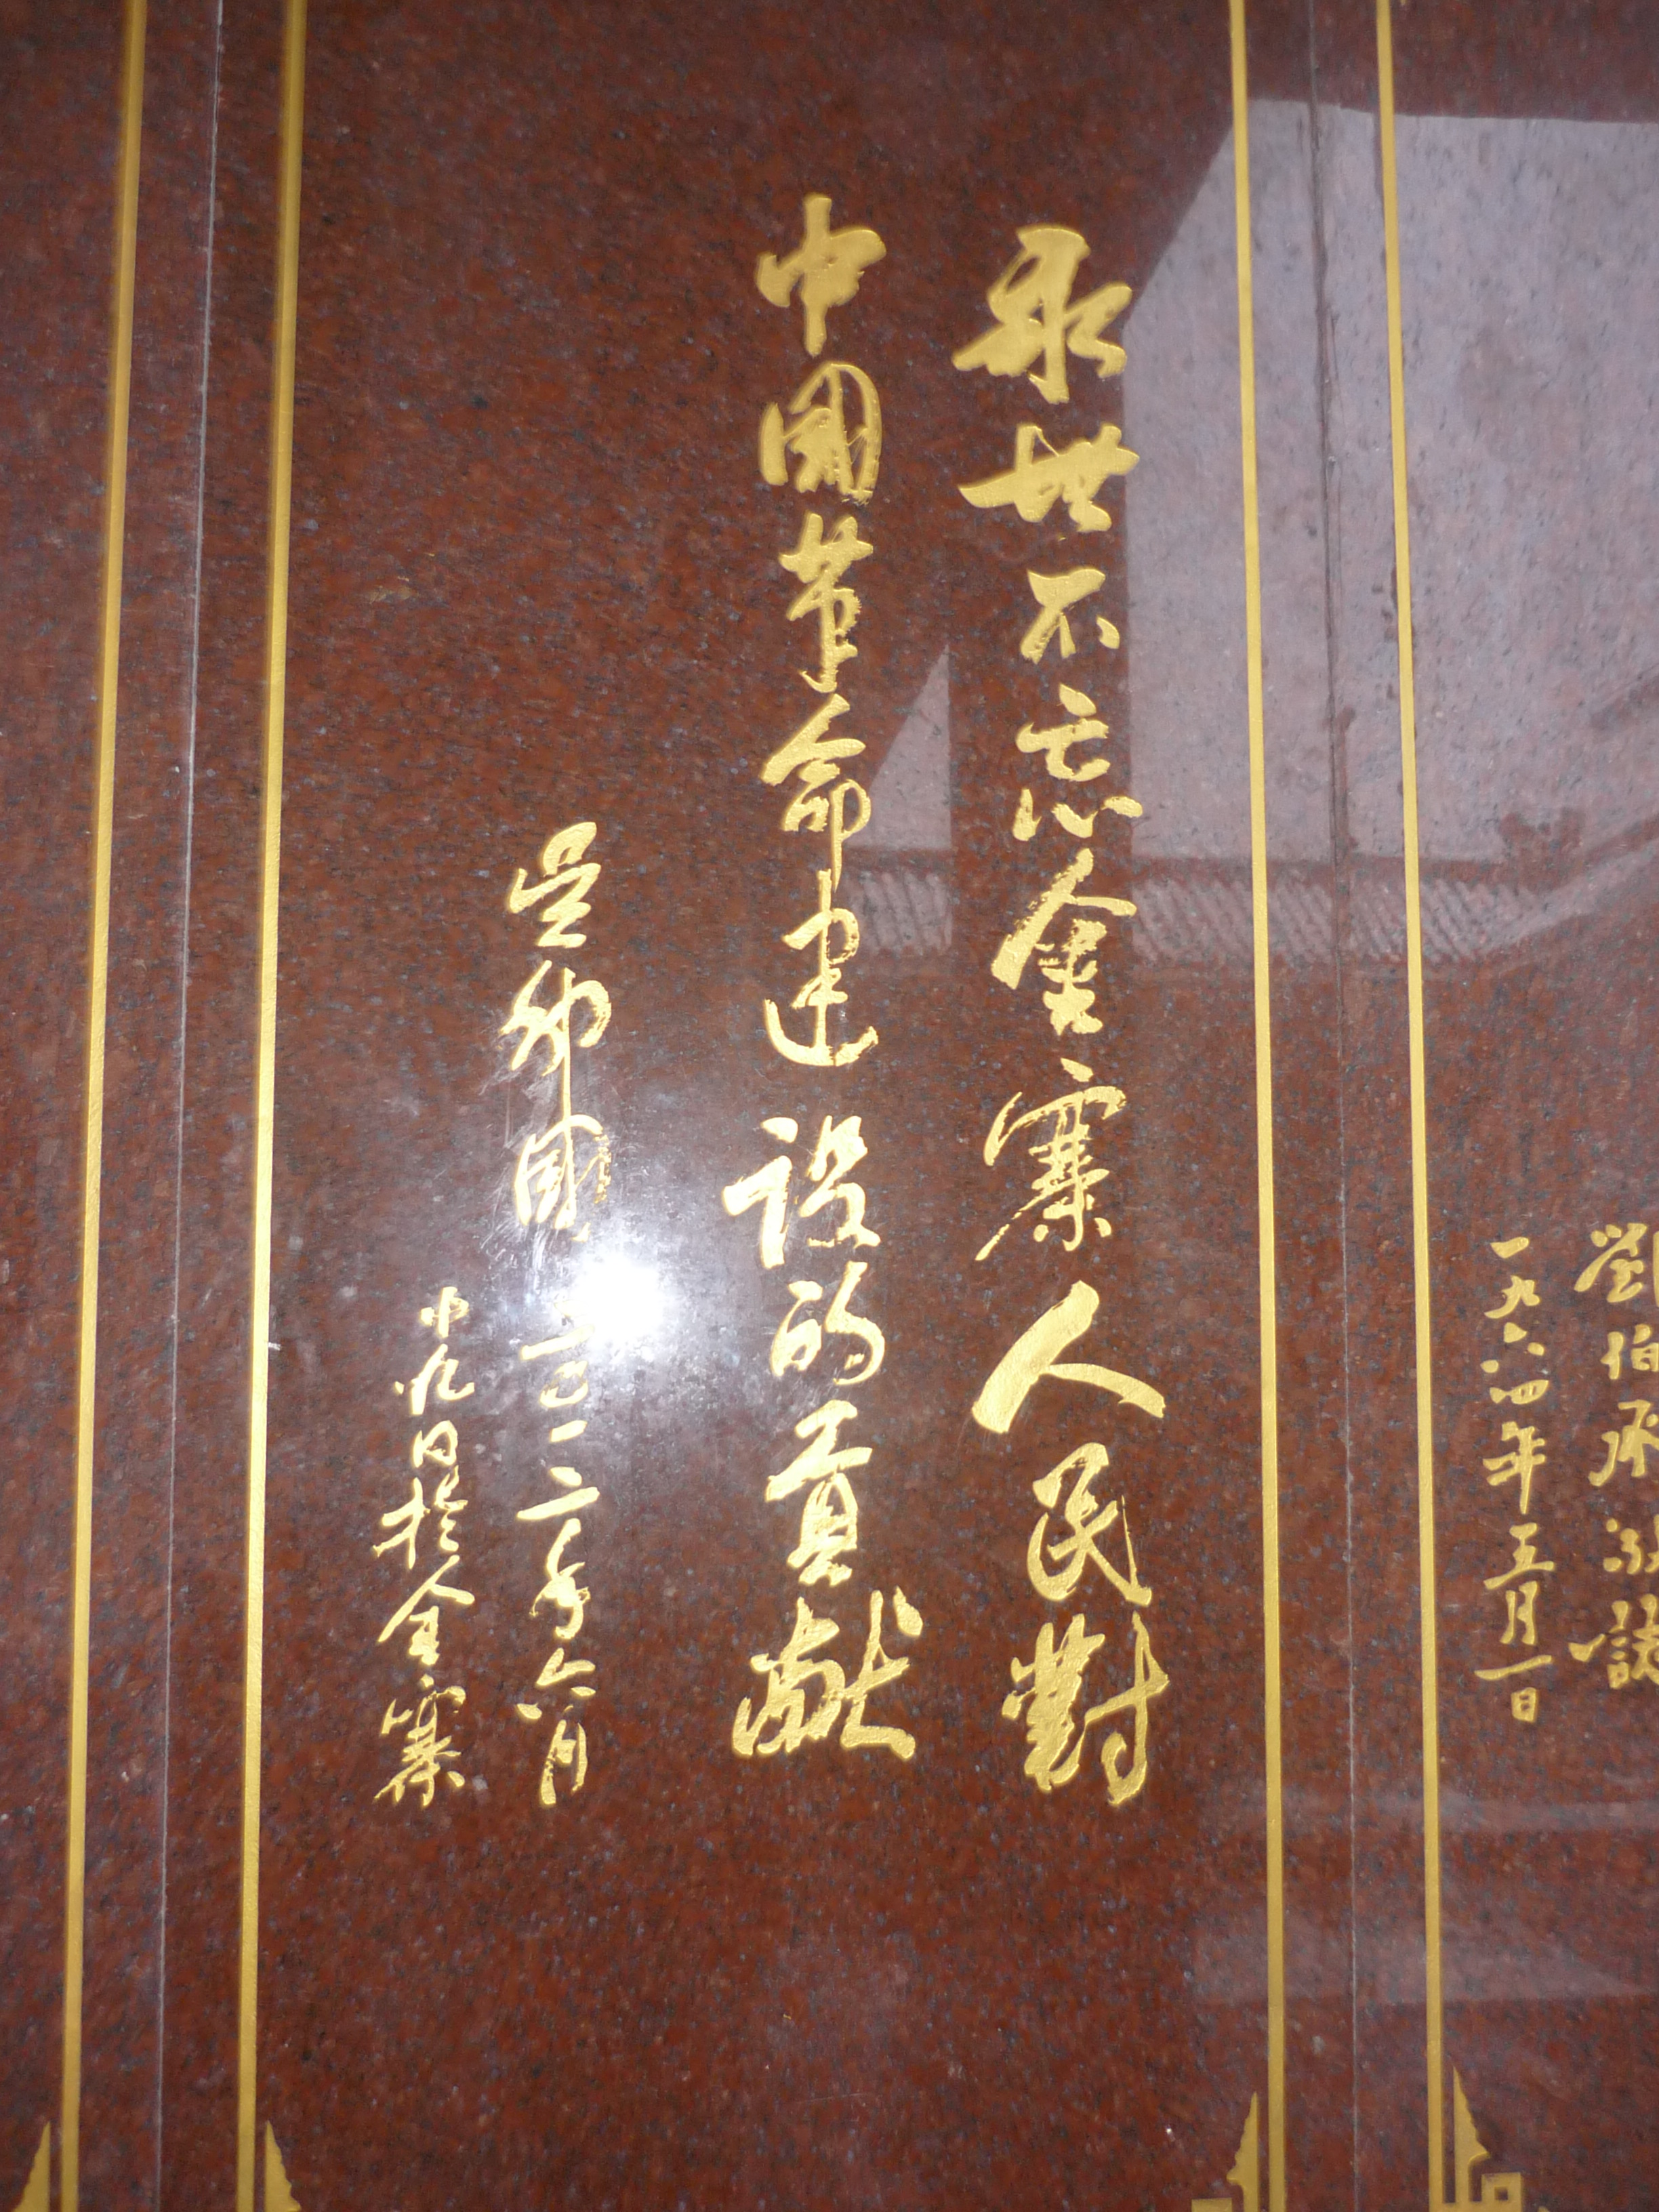 劉伯承敬誌
一九六四年五月一日
永世不忘金寨人民對
中國革命建设的貢献
吴邦國 二〇一二年六月
九日於金寨